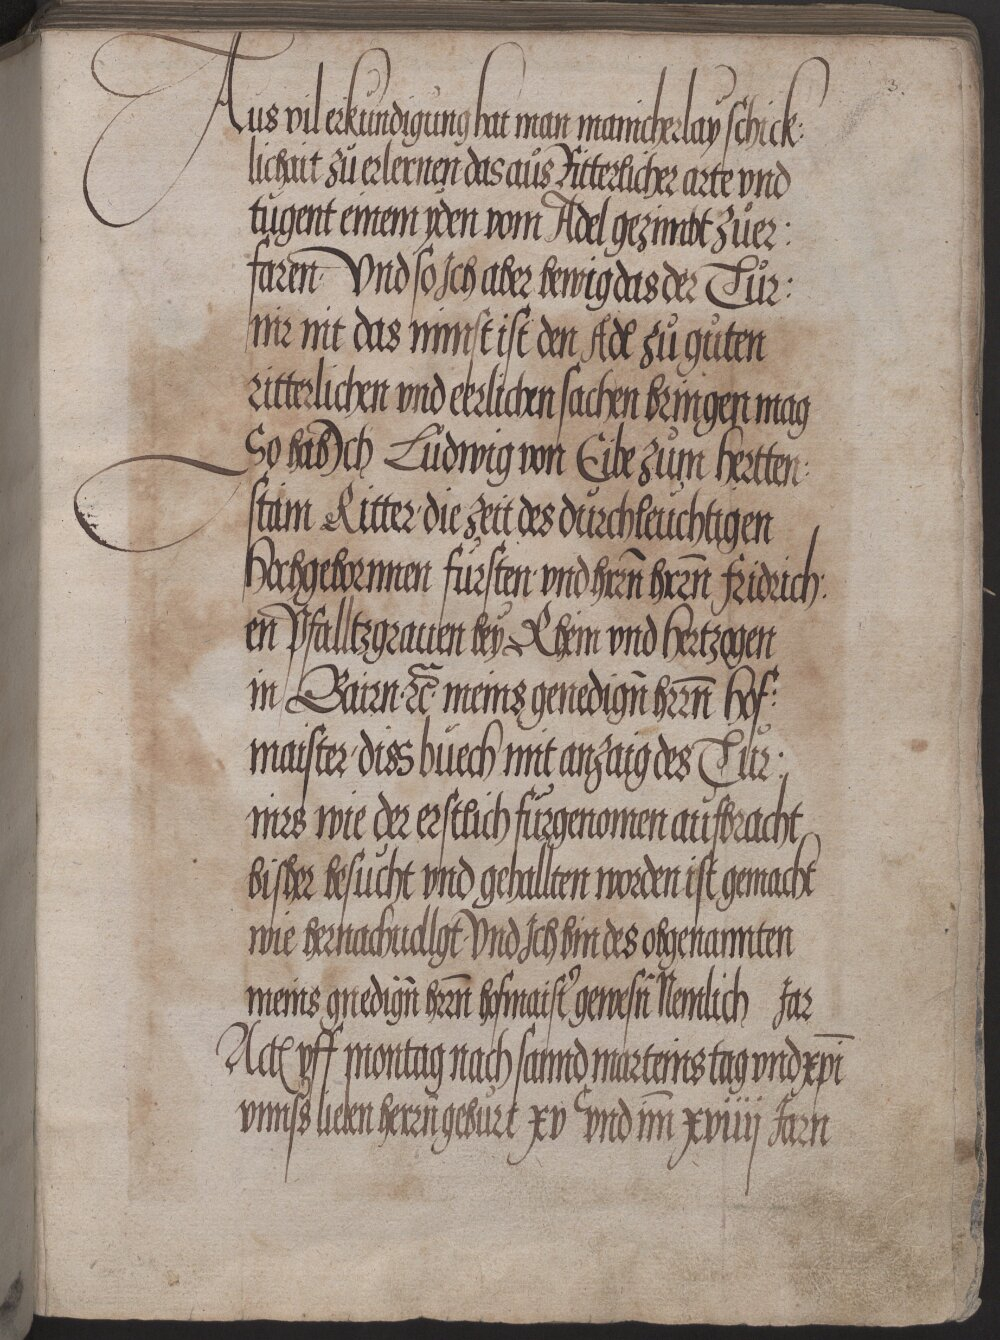 3.
Aus vil erkundigung hat man manicherlay schick:
lichait zu erlernen das aus Ritterlicher arte vnd
tugent einem yden vom Adel gezimbt zuer:
faren Vnd so Ich aber bewig das der Tur:
nir nit das minst ist den Adl zu guten
ritterlichen vnd eerlichen sachen bringen mag
So hab Ich Ludwig von Eibe zum hertten:
stain Ritter die zeit des durchleuchtigen
Hochgebornnen fursten vnd hrrn hrrn fridrich:
en Pfalltzgrauen bey Rhein vnd hertzogen
in Bairn ꝛc meins genedign hrrn hof:
maister diss buech mit anzaig des Tur:
nirs wie der erstlich furgenomen aufbracht
bisher besucht vnd gehallten worden ist gemacht
wie hernachuolgt Vnd Ich bin des obgenannten
meins gnedign hrrn hofmaistr gewesn Nemlich Jar
Act yff montag nach sannd marteins tag vnd xpi
vnnss lieben herrn geburt xv vnd im xviiij Jarn